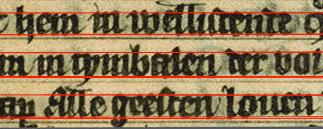 hem in welludende
in cymbalen der
Alle geesten louen